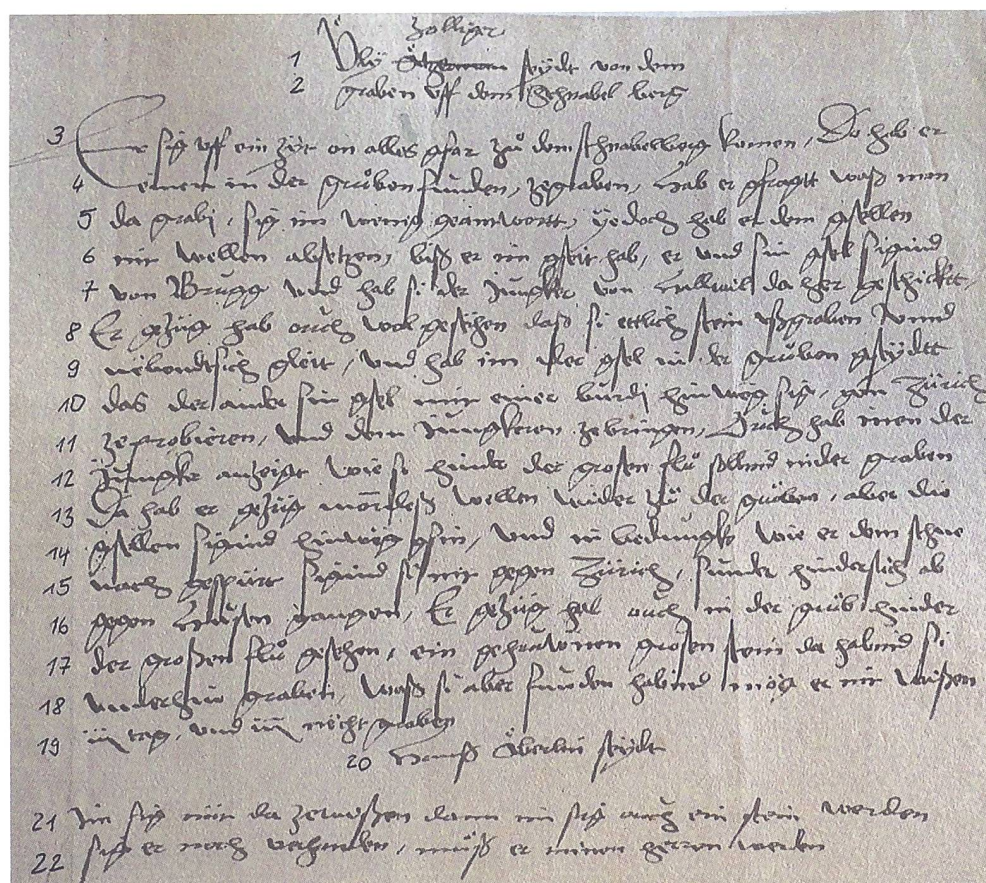 Zolliger
1 Uly seydt von dem
2 graben uff dem Schnabel berg
3 Er sig uff ein zyt on alles gfar zů dem schnabelberg komen, Do hab er
4 einen in der grůben funden, zegraben, hab er gfragtt waß man
5 da grabj, sig im wenig geantwortt, yedoch hab er dem gsellen
6 nit wellen absetzen, biß er im gseit hab, er und sin gsel sigind
7 von Brugg und hab si der Jungker von Hallwil da her geschicktt,
8 Er gezüg hab ouch wol gesehen daß si ettlich stein ußgraben unnd
9 nebendtsich gleit, und hab im der gsel in der grůben gseydtt
10 das der ander sin gsel mit einer burdj hinweg sig, gen Zürich
11 ze probieren, und dem Jungkeren ze bringen, Ouch hab inen der
12 Jungker anzeigt wie si hinder der grosen flů sollind nider graben
13 Da hab er gezüg morndeß wellen wider zů der grůben, aber die
14 gsellen sigind hinweg gsin, und in bedungke wie er dem schne
15 nach gespürt sigind si nit gegen Zürich, sunder hindersich ab
16 gegen Husen gangen, Er gezüg hab ouch in der grůb hinder
17 der großen flů gesehen, ein gehuwnen grosen stein da habind si
18 underhin graben, waß si aber funden habind mög er nit wüßen
19 iij tag, und iij nëcht graben
20 Hanß Äberlin seydt
21 Im sig nüt da ze wüßen dann im sig ouch ein stein worden
22 sig er noch verhanden, můß er minen herren werden